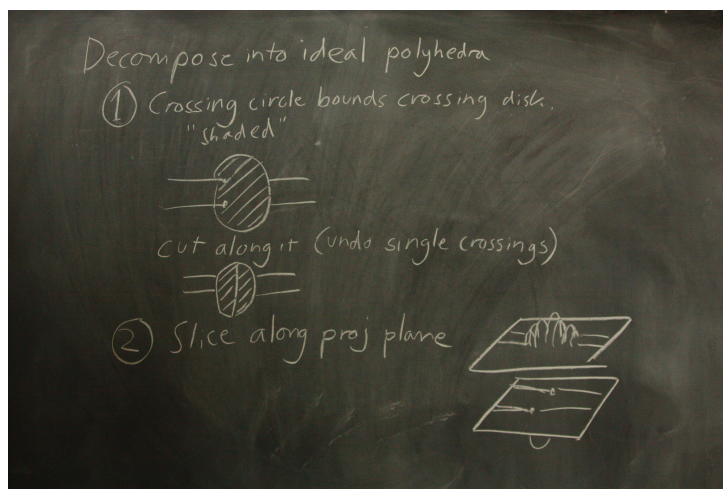 Decompose into ideal polyhedra
① Crossing circle bounds crossing disk.
"shaded"
cut along it (undo single crossings)
② Slice along proj plane